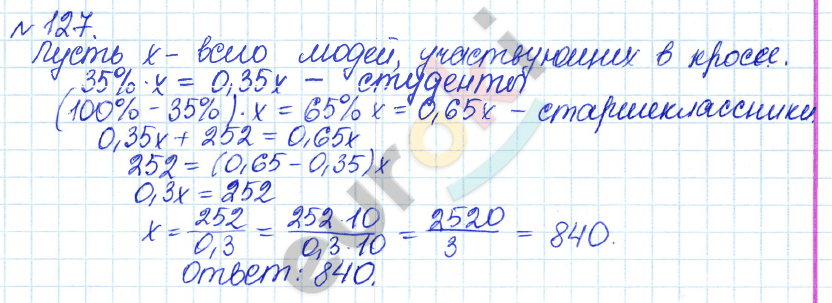 № 127.
Пусть x - всего людей, участвующих в кроссе.
35% · x = 0,35x - студенты
(100% - 35%) · x = 65% x = 0,65x - старшеклассники.
0,35x + 252 = 0,65x
252 = (0,65 - 0,35)x
0,3x = 252
x = 252/0,3 = 252·10/0,3·10 = 2520/3 = 840.
Ответ: 840.
euroki